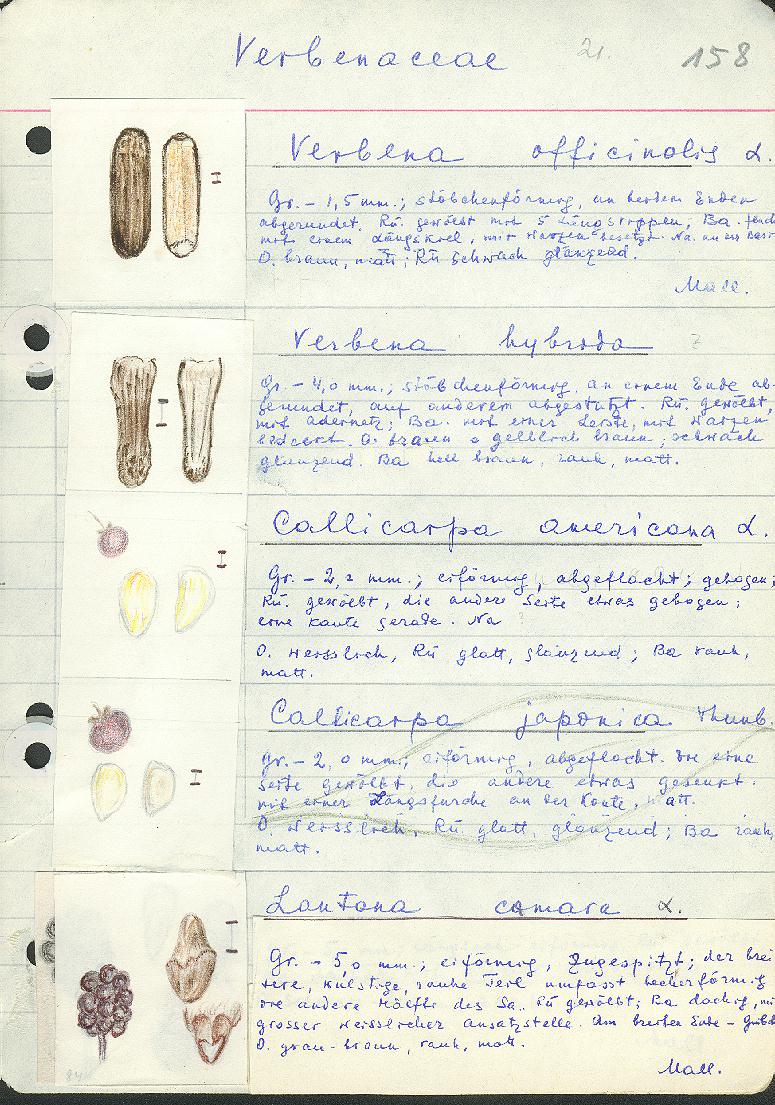 Verbenaceae 21. 158
Verbena officinalis L.
Gr. - 1,5 mm.; stäbchenförmig, an beiden Enden
abgerundet. Rü. gewölbt mit 5 Längsrippen; Ba.
mit einem Längskiel, mit Warzen besetzt. Na. an der
O. braun, matt; Rü schwach glänzend.
Mall.
Verbena hybrida
Gr. - 4,0 mm.; stäbchenförmig, an einem Ende ab-
gerundet, auf anderem abgestutzt. Rü. gewölbt,
mit Adernetz; Ba. mit einer Leiste, mit Warzen
O. braun o gelblich braun; schwach
glänzend. Ba hell braun, rauh, matt.
Callicarpa americana L.
Gr. - 2,2 mm.; eiförmig, abgeflacht; gebogen;
Rü. gewölbt, die andere Seite etwas gebogen;
eine Kante gerade. Na
O. weisslich, Rü glatt, glänzend; Ba rauh,
matt.
Callicarpa japonica Thunb.
Gr. - 2,0 mm.; eiförmig, abgeflacht. Die eine
Seite gewölbt, die andere etwas gesenkt.
mit einer Längsfurche an der Kante, matt.
O. weisslich, Rü. glatt, glänzend; Ba rauh,
matt.
Lantana camara L.
Gr. - 5,0 mm.; eiförmig, zugespitzt; der brei
tere, wulstige, rauhe Teil umfasst becherförmig
die andere Hälfte des Sa.. Rü gewölbt; Ba dachig, mi
grosser weisslicher Ansatzstelle. Am breiten Ende -
O. grau-braun, rauh, matt.
Mall.